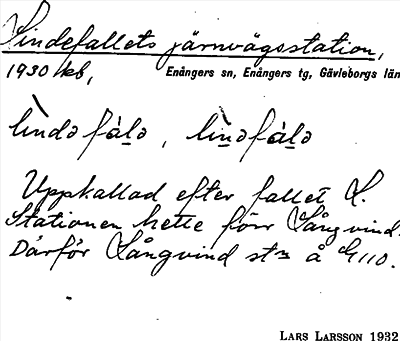 Lindefallets järnvägsstation,
1930 kb, Enångers sn, Enångers tg, Gävleborgs län
lìndə fàlə, lìnəfàlə
Uppkallad efter fallet L.
Stationen hette förr Långvind.
Därför Långvind stn å G110.
LARS LARSSON 1932